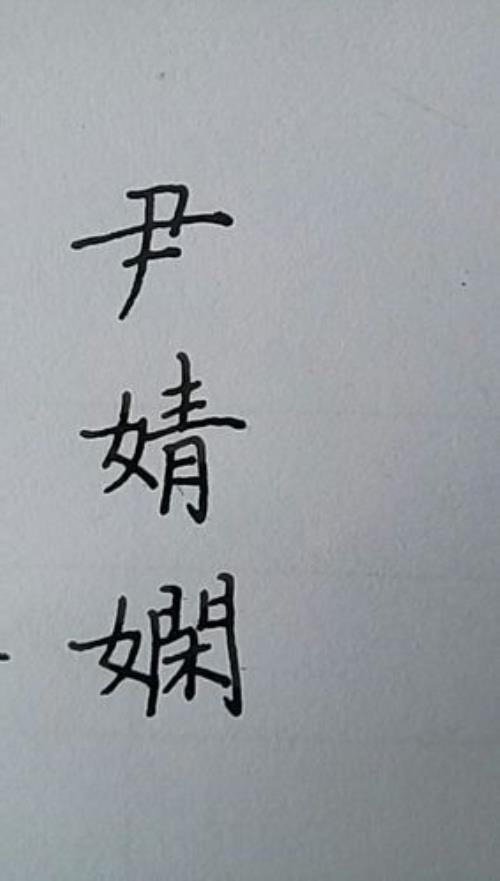 尹
婧
嫻